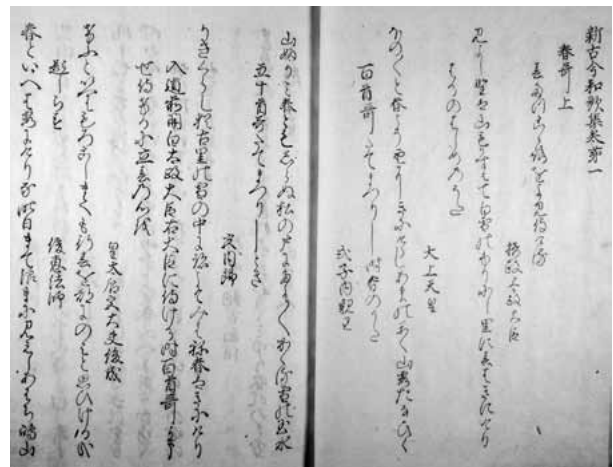 新古今和歌集巻第一
春哥上
春たつ心をよみ侍ける
摂政太政大臣
みよし野は山もかすみて白雪のふりにし里に春はきにけり
春のはしめのうた
太上天皇
ほの〳〵と春こそ空にきにけらしあまのかく山霞たなひく
百首哥たてまつりし時春のうた
式子内親王
山ふかみ春ともしらぬ松の戸にたえ〳〵かゝる雪の玉水
五十首哥たてまつりしとき
宮内卿
かきくらし猶古里の雪の中に跡こそみえね春はきにけり
入道前関白太政大臣右大臣に侍ける時百首哥よま
せ侍けるに立春の心を
皇太后宮大夫俊成
けふといへはもろこしまても行春を都にのみと思ひけるかな
題しらす
俊恵法師
春といへは霞にけりな昨日まて浪まに見えしあはち嶋山